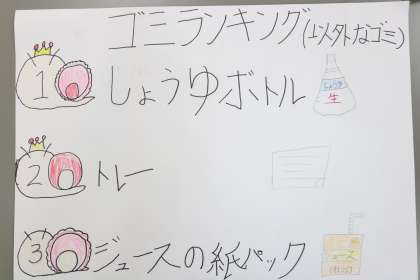 ゴミランキング(以外なゴミ)
1 しょうゆボトル
しょうゆ
生
2 トレー
3 ジュースの紙パック
ジュース